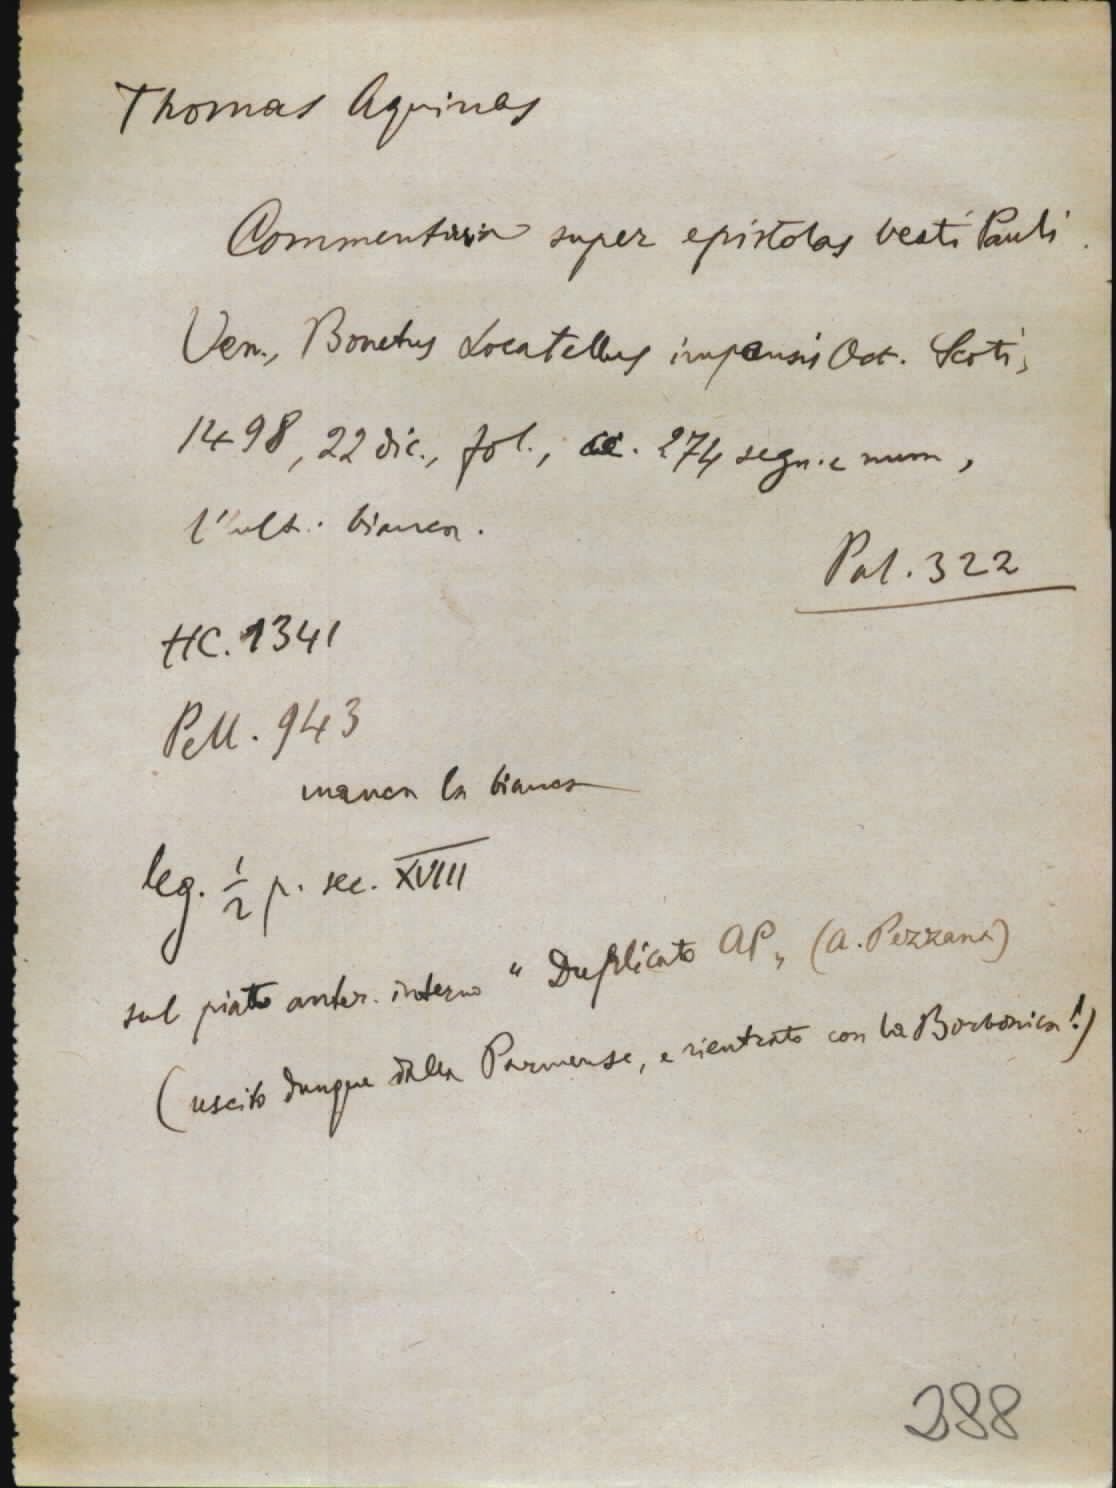 Thomas Aquinas
Commentaria super epistolas beati Pauli.
Ven., Bonetus Locatellus impensis Oct. Scoti,
1498, 22 dic., fol., cc. 274 segn. e num,
l'ult. bianca.
Pal. 322
HC. 1341
Pell. 943
manca la bianca
leg. 1/2 p. sec. XVIII
sul piatto anter. interno "Duplicato AP„ (A. Pezzana)
(uscito dunque dalla Parmense, e rientrato con la Borbonica!)
288